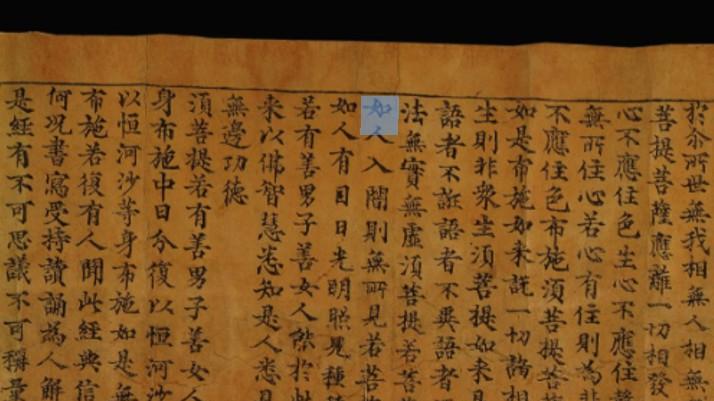 於尒所世無我相無人相無
菩提菩薩應離一切相發
心不應住色生心不應住聲
無所住心若心有住則為非
不應住色布施須菩提菩
如是布施如来說一切諸相
生則非衆生須菩提如来是
語者不誑語者不異語者
法無實無虛須菩提若菩
如人入闇則無所見若菩
如人有目日光明照見種
若有善男子善女人能於此
来以佛智慧悉知是人悉見
無邊功德
須菩提若有善男子善女人
身布施中日分復以恒河沙
以恒河沙等身布施如是無
布施若復有人聞此經典信
何況書寫受持讀誦為人解
是經有不可思議不可稱量